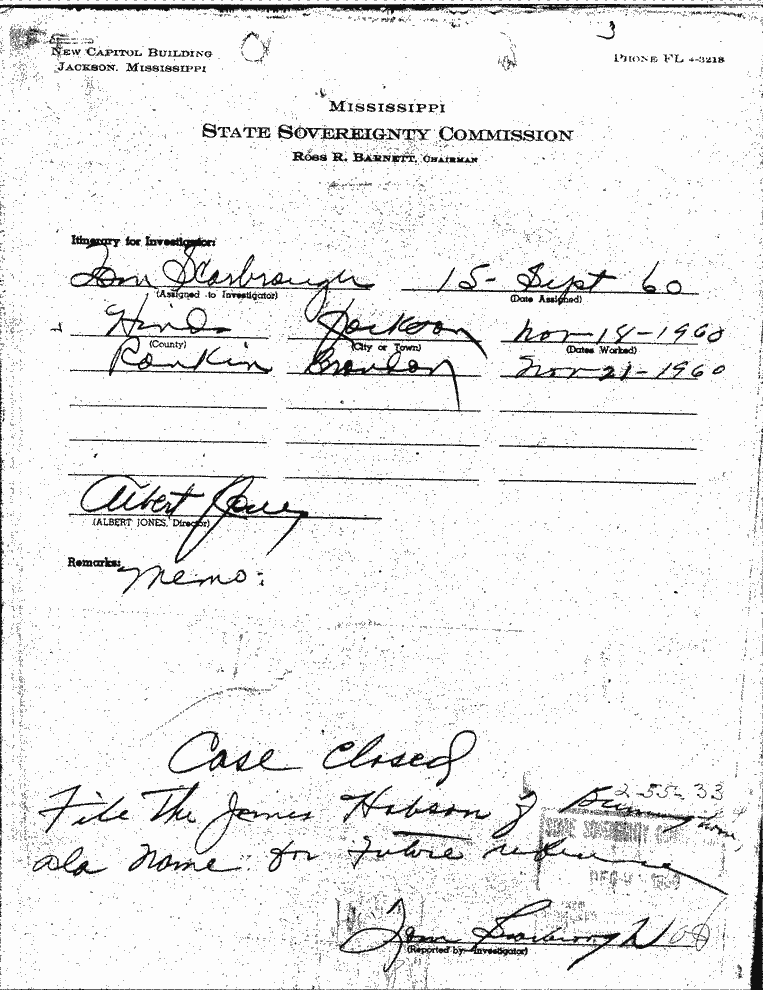 3
NEW CAPITOL BUILDING
JACKSON, MISSISSIPPI
PHONE FL 4-3218
MISSISSIPPI
STATE SOVEREIGNTY COMMISSION
ROSS R. BARNETT, CHAIRMAN
Itinerary for Investigator:
Tom Scarbrough 15- Sept 60
(Assigned to Investigator) (Date Assigned)
Hinds Jackson Nov-18-1960
(County) (City or Town) (Dates Worked)
Rankin Brandon Nov-21-1960
Albert Jones
(ALBERT JONES, Director)
Remarks: Memo:
Case Closed
2-55-33
File The James Hobson of Birmingham,
Ala name for future reference
STATE SOVEREIGNTY
Tom Scarbrough
(Reported by: Investigator)